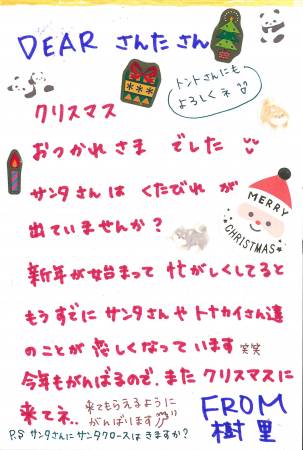 DEAR さんたさん
トントさんにも
よろしくネ
クリスマス
おつかれさま でした
サンタさん は くたびれ が
出ていませんか?
MERRY
CHRISTMAS
新年が始まって 忙がしくしてると
もう すでに サンタさん や トナカイさん達
のことが 恋しくなって います 笑笑
今年もがんばるので、また クリスマスに
来てネ..
来てもらえるように
がんばります
FROM
樹里
P.S サンタさんに サンタクロースは きますか?